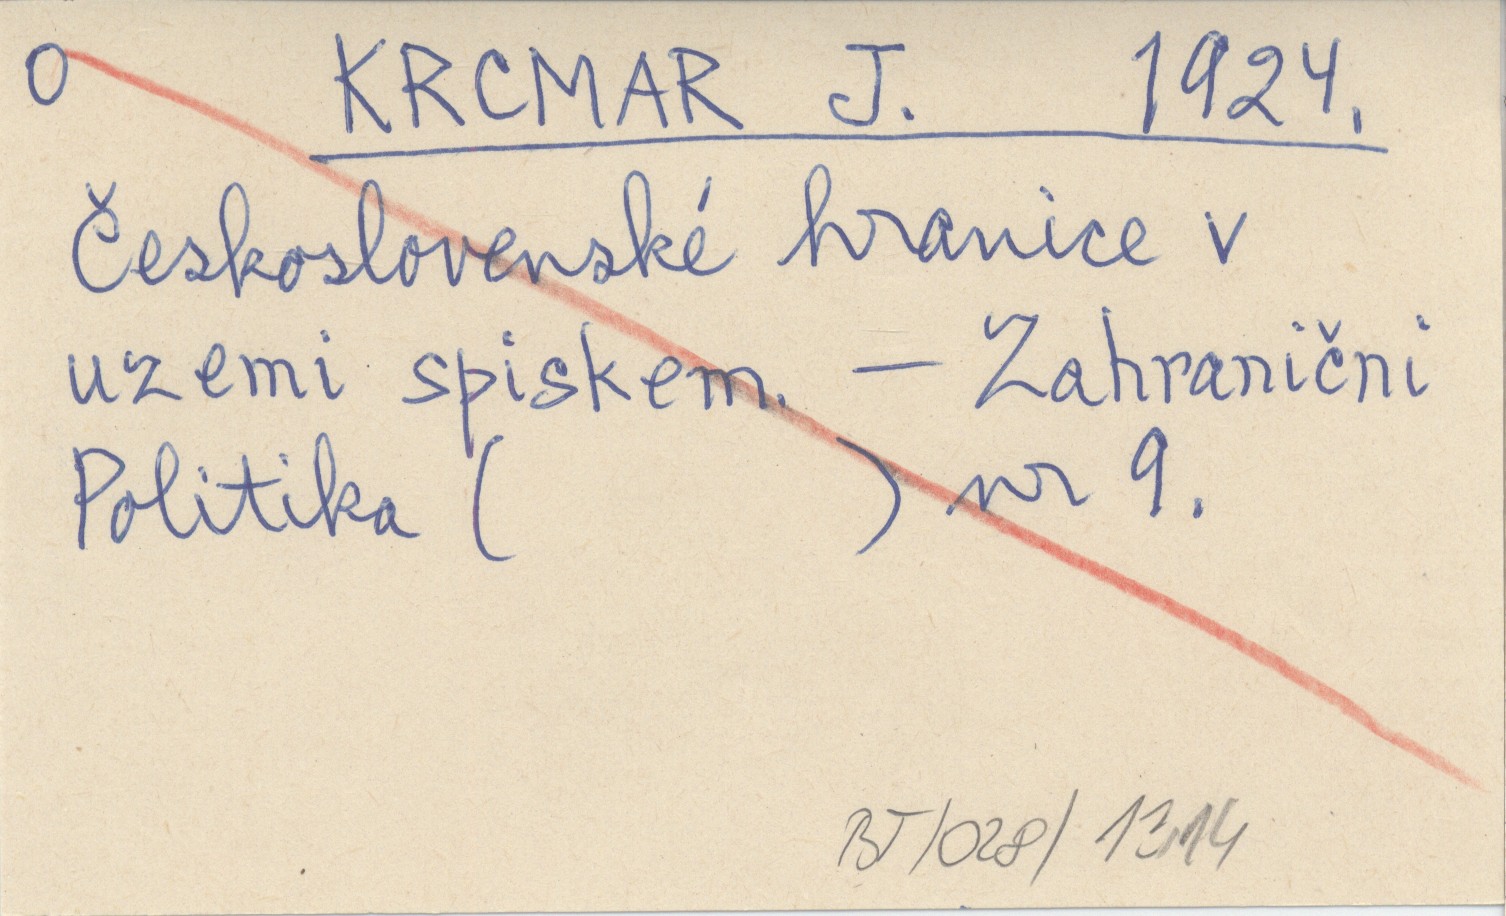 O KRCMAR J. 1924.
Československé hranice v
uzemi spiskem. — Zahranični
Politika ( ) nr 9.
BJ/028/1314